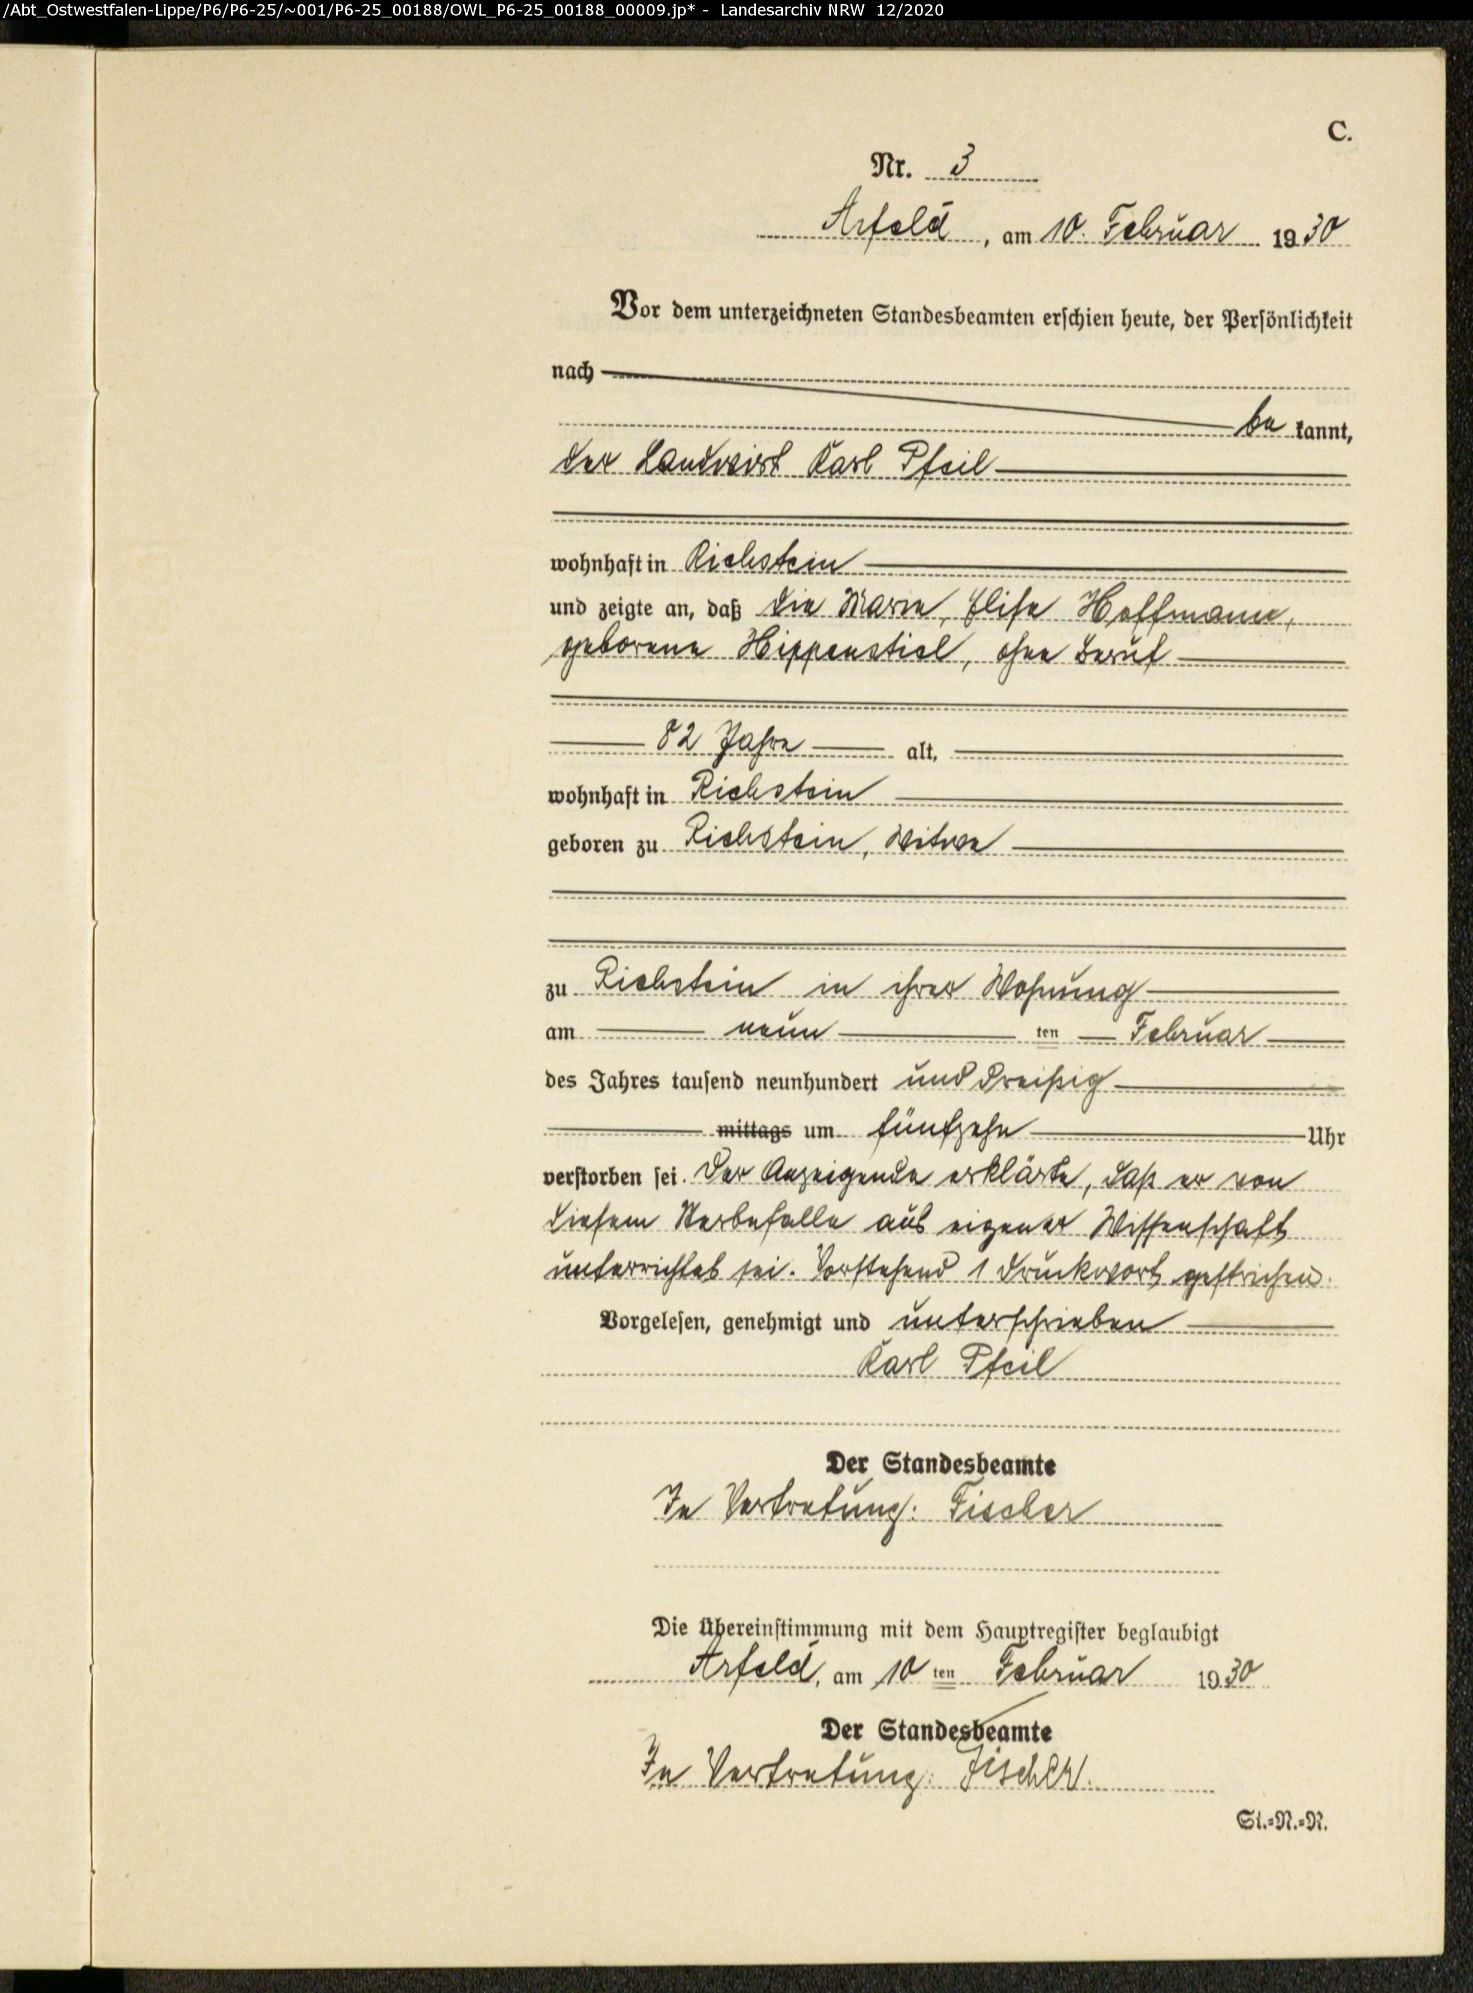 /Abt_Ostwestfalen-Lippe/P6/P6-25/~001/P6-25_00188/OWL_P6-25_00188_00009.jp* - Landesarchiv NRW 12/2020
C.
Nr. 3
Arfeld, am 10. Februar 1930
Vor dem unterzeichneten Standesbeamten erschien heute, der Persönlichkeit
nach
be kannt,
der Landwirt Karl Pfeil
wohnhaft in Richstein
und zeigte an, daß die Marie, Elise Hoffmann,
geborene Hippenstiel, ohne Beruf
82 Jahre alt,
wohnhaft in Richstein
geboren zu Richstein, Witwe
zu Richstein in ihrer Wohnung
am neun ten Februar
des Jahres tausend neunhundert und dreißig
mittags um fünfzehn Uhr
verstorben sei. Der Anzeigende erklärte, daß er von
diesem Sterbefalle aus eigener Wissenschaft
unterrichtet sei. Vorstehend 1 Druckwort gestrichen.
Vorgelesen, genehmigt und unterschrieben
Karl Pfeil
Der Standesbeamte
In Vertretung: Fischer
Die Übereinstimmung mit dem Hauptregister beglaubigt
Arfeld, am 10 ten Februar 1930
Der Standesbeamte
In Vertretung: Fischer.
St.=N.=R.